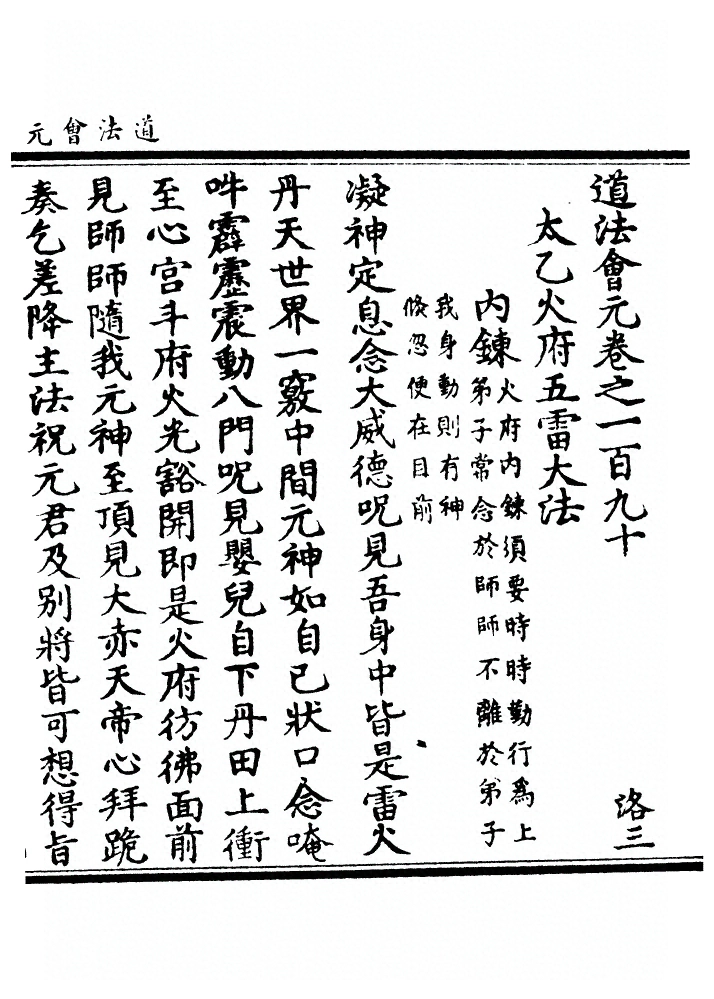 道法會元
道法會元卷之一百九十 洛三
太乙火府五雷大法
內鍊 火府內鍊須要時時勤行為上
弟子常念於師師不離於弟子
我身動則有神
倏忽便在目前
凝神定息念大威德呪見吾身中皆是雷火
丹天世界一竅中間元神如自己狀口念唵
吽霹靂震動八門呪見嬰兒自下丹田上衝
至心宮斗府火光豁開即是火府彷彿面前
見師師隨我元神至頂見大赤天帝心拜跪
奏乞差降主法祝元君及別將皆可想得旨